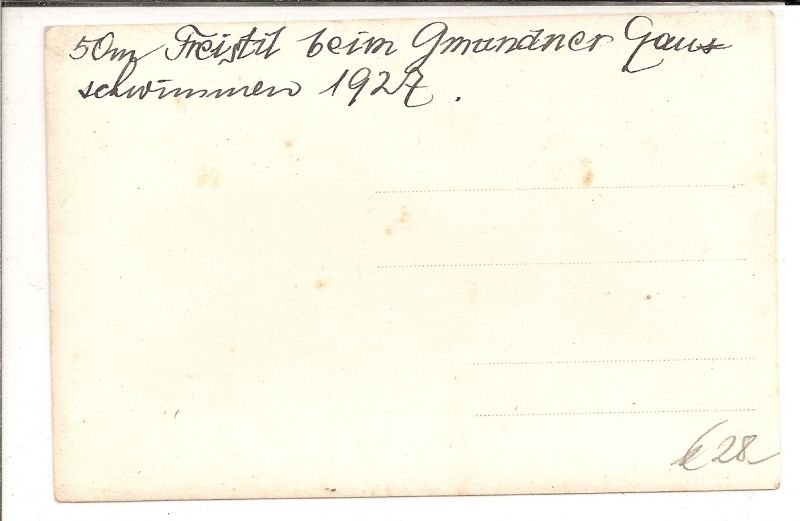 50m Freistil beim Gmundner Gau=
schwimmen 1927.
28